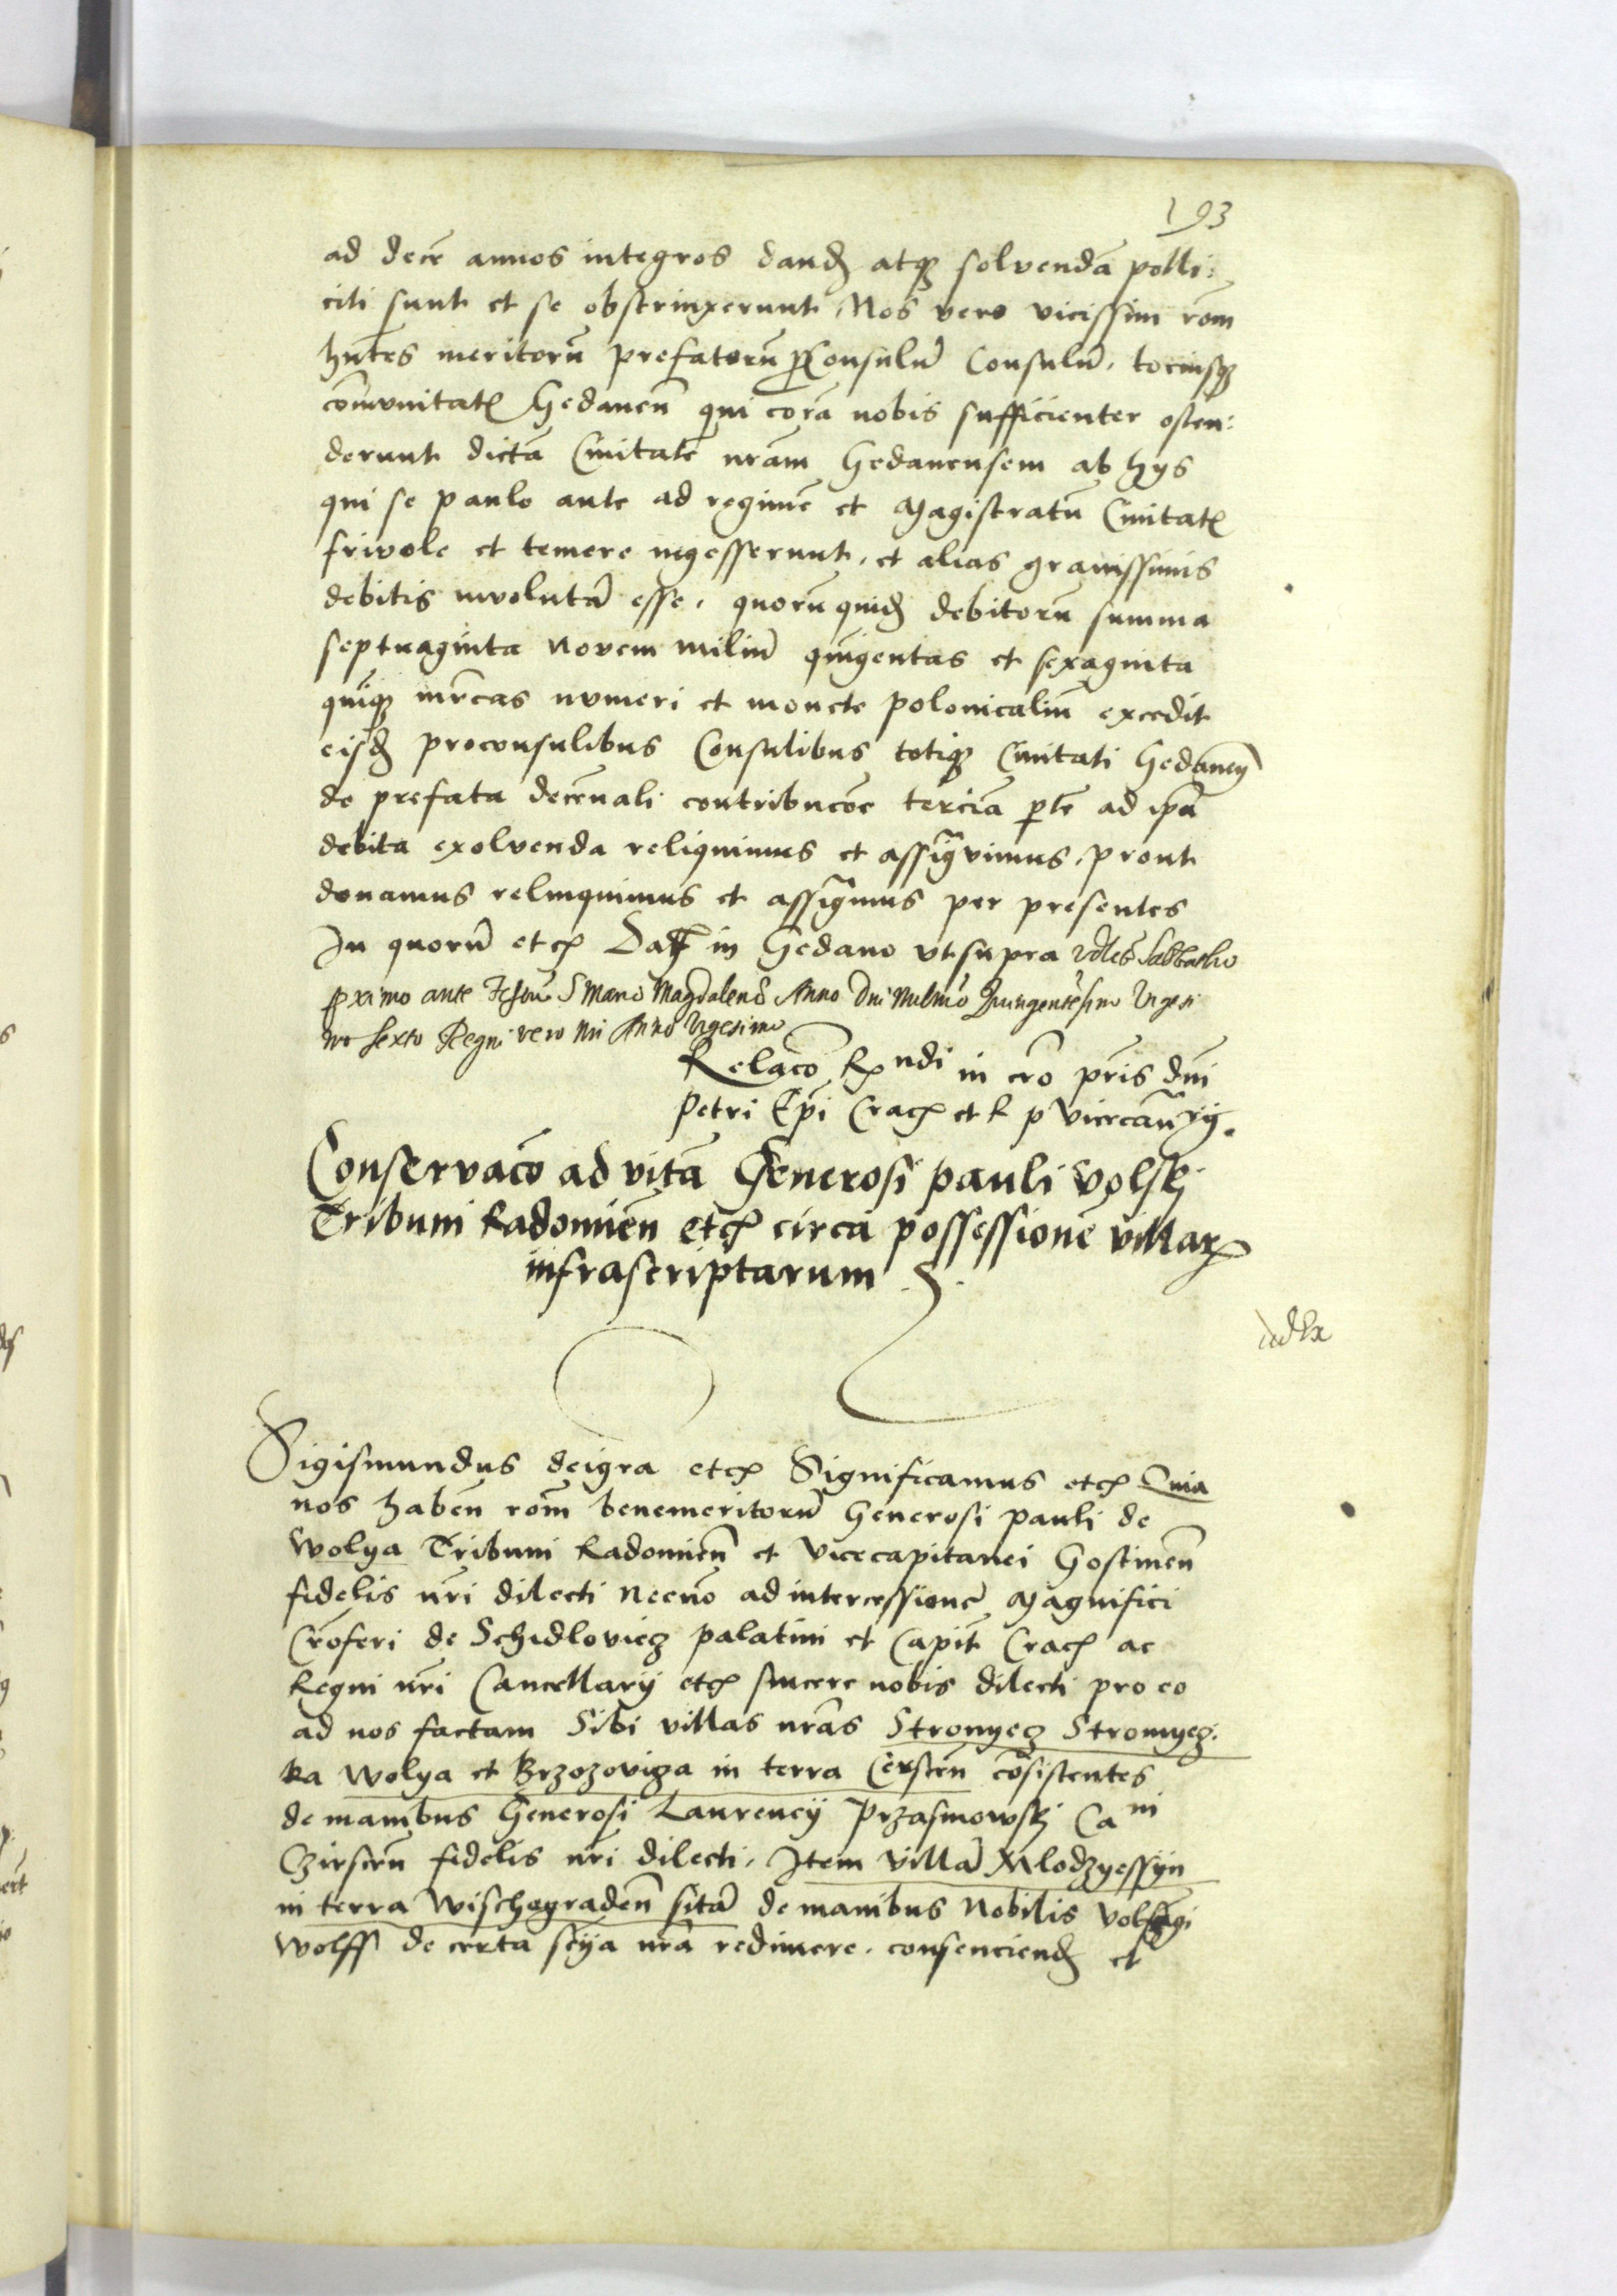 193
ad decē annos integros dand₃ atq₃ solvendā polli:
citi sunt et se obstrinxerunt, Nos vero vicissim rōm
hn̄tes meritorū prefatorū ꝓConsulū Consulū, tociusq₃
cōmunitatꝭ Gedanen̄ qui corā nobis sufficienter osten:
derunt dictā Civitatē nr̄am Gedanensem ab hys
qui se paulo ante ad regimē et Magistratū Civitatꝭ
frivole et temere ingesserunt, et alias gravissimis
debitis involutā esse, quorū quid₃ debitorū summa
septuaginta novem miliū quīgentas et sexaginta
quīq₃ mr̄cas numeri et monete polonicaliū excedit
eisd₃ proconsulibus Consulibus totiq₃ Civitati Gedanen̄
de prefata decēnali contribucōe terciā ꝑtē ad ip̄a
debita exolvenda reliquimus et assig̃vimus, prout
donamus relinquimus et assig̃mus per presentes
In quorū etcꝭ Datꝭ in Gedano ut supra Sabbatho
ꝓximo ante Festū S Marie Magdalene Anno Dni Milmo Quingentesimo Vigesi
mo sexto Regni vero nri Anno Vigesimo
Relacō Rꝭ ndi in cro pr̄is dn̄i
Petri Ep̄i Cracꝭ et R p vicecan̄ rij.
Conservacō ad vitā Generosi pauli Volskj
Tribuni Radomien̄ etcꝭ circa possessionē villaꝝ
infrascriptarum .S.
Sigismundus dei gra etcꝭ Significamus etcꝭ Quia
nos haben̄ rōm benemeritorū Generosi pauli de
Wolya Tribuni Radomien̄ et vicecapitanei Gostinen̄
fidelis nr̄i dilecti Necnō ad intercessionē Magnifici
Cr̄oferi de Schidloviecz palatini et Capit̄ Cracꝭ ac
Regni nr̄i Cancellarij etcꝭ sincere nobis dilecti pro eo
ad nos factam Sibi villas nr̄as Stronyecz Stromyecz:
ka Wolya et Brzozovicza in terra Cersen̄ cōsistentes
de manibus Generosi Laurencij Przasmowskj Ca ni
Czirscen̄ fidelis nr̄i dilecti, Item villā Mlodzyessyn
in terra Wischegraden̄ sitā de manibus Nobilis Volfgagi
Wolff de certa scīja nr̄a redimere, consenciend₃ et